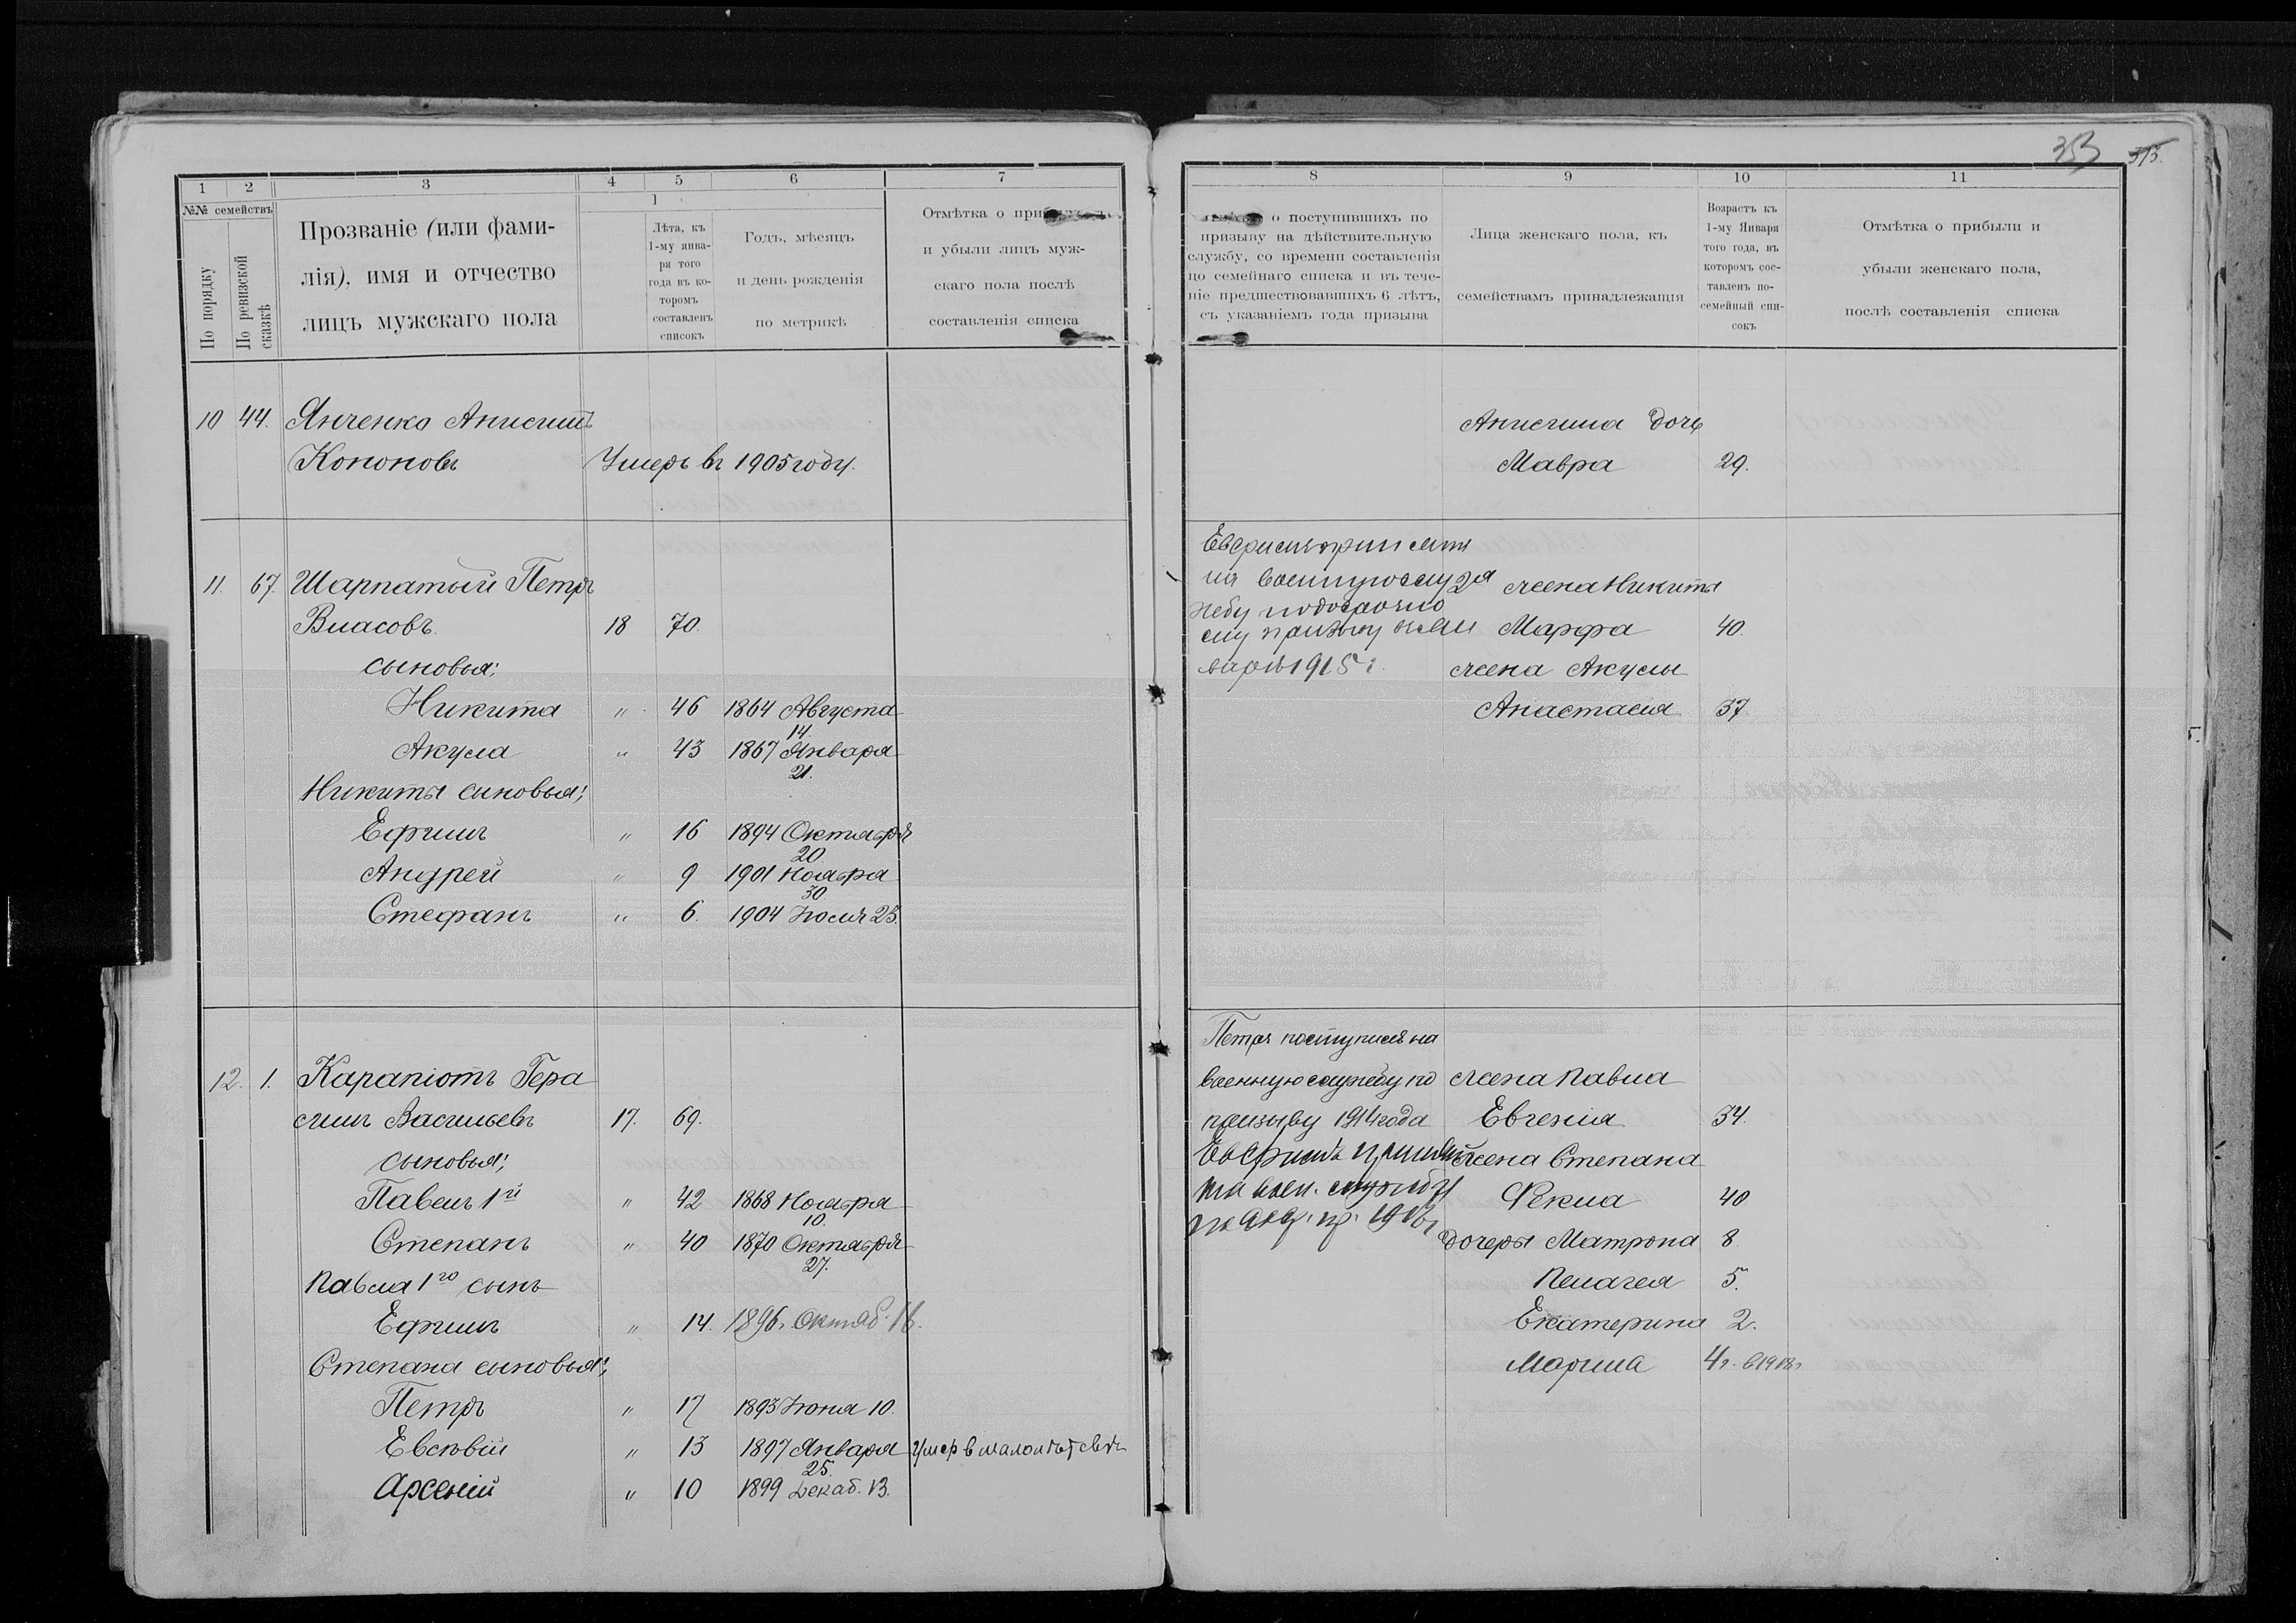 353 375.
1 2 3 4 5 6 7
№№ семействъ
По порядку
По ревизской сказкѣ
Прозваніе (или фами-
лія), имя и отчество
лицъ мужскаго пола
1
Лѣта, къ
1-му янва-
ря того
года въ ко-
торомъ
составленъ
списокъ
Годъ, мѣсяцъ
и день рожденія
по метрикѣ
Отмѣтка о
и убыли лицъ муж-
скаго пола послѣ
составленія списка
10 44. Янченко Анисимъ
Кононовъ Умеръ въ 1905 году.
11. 67. Шарпатый Петръ
Власовъ. 18 70.
сыновья;
Никита " 46 1864 Августа
14.
Акула " 43 1867 Января
21.
Никиты сыновья;
Ефимъ " 16 1894 Октября
20.
Андрей " 9 1901 Ноября
30
Стефанъ " 6. 1904 Іюля 23.
12. 1. Карапіотъ Гера
симъ Васильевъ 17. 69.
сыновья;
Павелъ 1й " 42 1868 Ноября
10.
Степанъ " 40 1870 Октября
27.
Павла 1го сынъ
Ефимъ " 14. 1896. Октяб. 16.
Степана сыновья;
Петръ " 17 1893 Іюня 10.
Евсѣвій " 13 1897 Января умер в малолѣтствѣ
25.
Арсеній " 10 1899 Декаб. 13.
8 9 10 11
о поступившихъ по
призыву на дѣйствительную
службу, со времени составленія
по семейнаго списка и въ тече-
ніе предшествовавшихъ 6 лѣтъ,
съ указаніемъ года призыва
Лица женскаго пола, къ
семействамъ принадлежащія
Возрастъ къ
1-му Января
того года, въ
которомъ сос-
тавленъ по-
семейный спи-
сокъ
Отмѣтка о прибыли и
убыли женскаго пола,
послѣ составленія списка
Анисима дочь
Мавра 29.
принятъ
на военную слу 2я жена Никиты
жбу по досрочно
му призыву Марфа 40.
1915 г. жена Акулы
Анастасія 37.
Петръ поступилъ на
военную службу по жена Павла
призыву 1914 года Евгенія 34.
принятъ жена Степана
на воен. службу Фекла 40
дочеры Матрона 8.
Пелагея 5.
Екатерина 2.
Марина 4 г. в 1918 г.